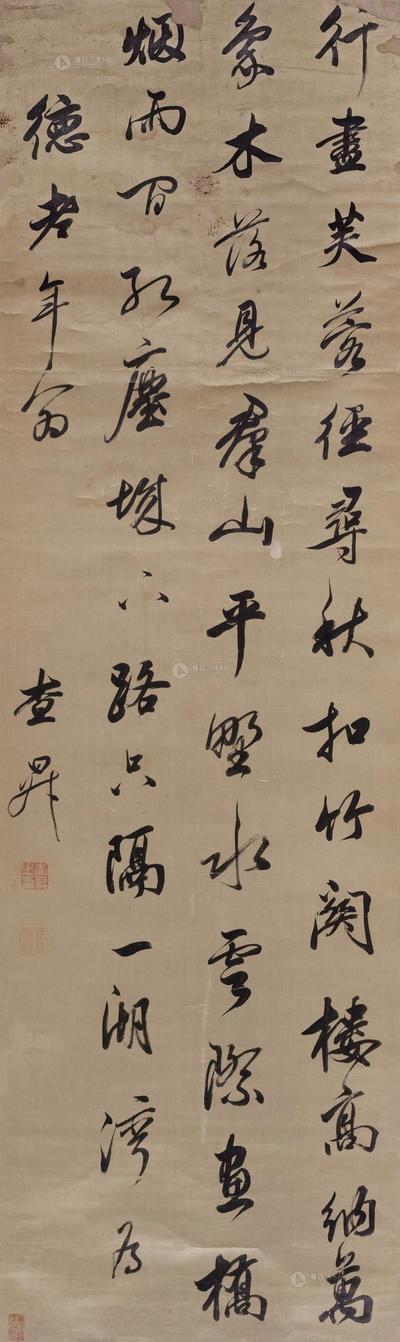 行盡芙蓉徑尋秋扣竹關樓高納萬
象木落見羣山平野水雲際畫橋
烟雨间紅塵城下路只隔一湖灣为
德老年翁
查昇